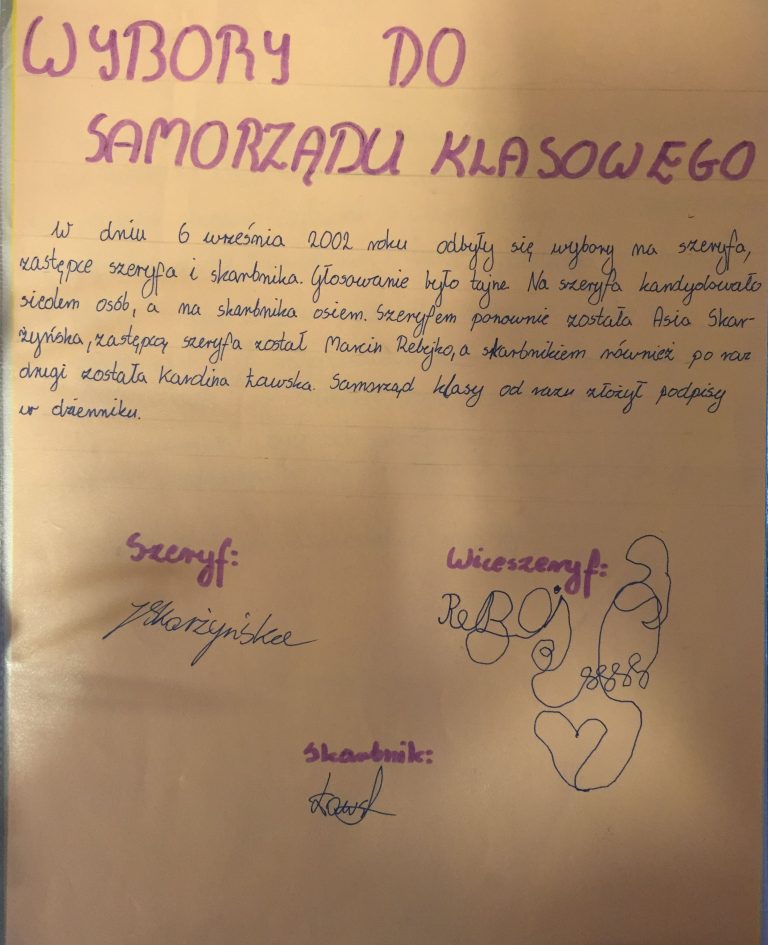 WYBORY DO
SAMORZĄDU KLASOWEGO
W dniu 6 września 2002 roku odbyły się wybory na szeryfa,
zastępce szeryfa i skarbnika. Głosowanie było tajne. Na szeryfa kandydowało
siedem osób, a na skarbnika osiem. Szeryfem ponownie została Asia Skar-
żyńska, zastępcą szeryfa został Marcin Rebejko, a skarbnikiem również po raz
drugi została Karolina Ławska. Samorząd klasy od razu złożył podpisy
w dzienniku.
Szeryf:
Wiceszeryf:
JSkarżyńska
Skarbnik: